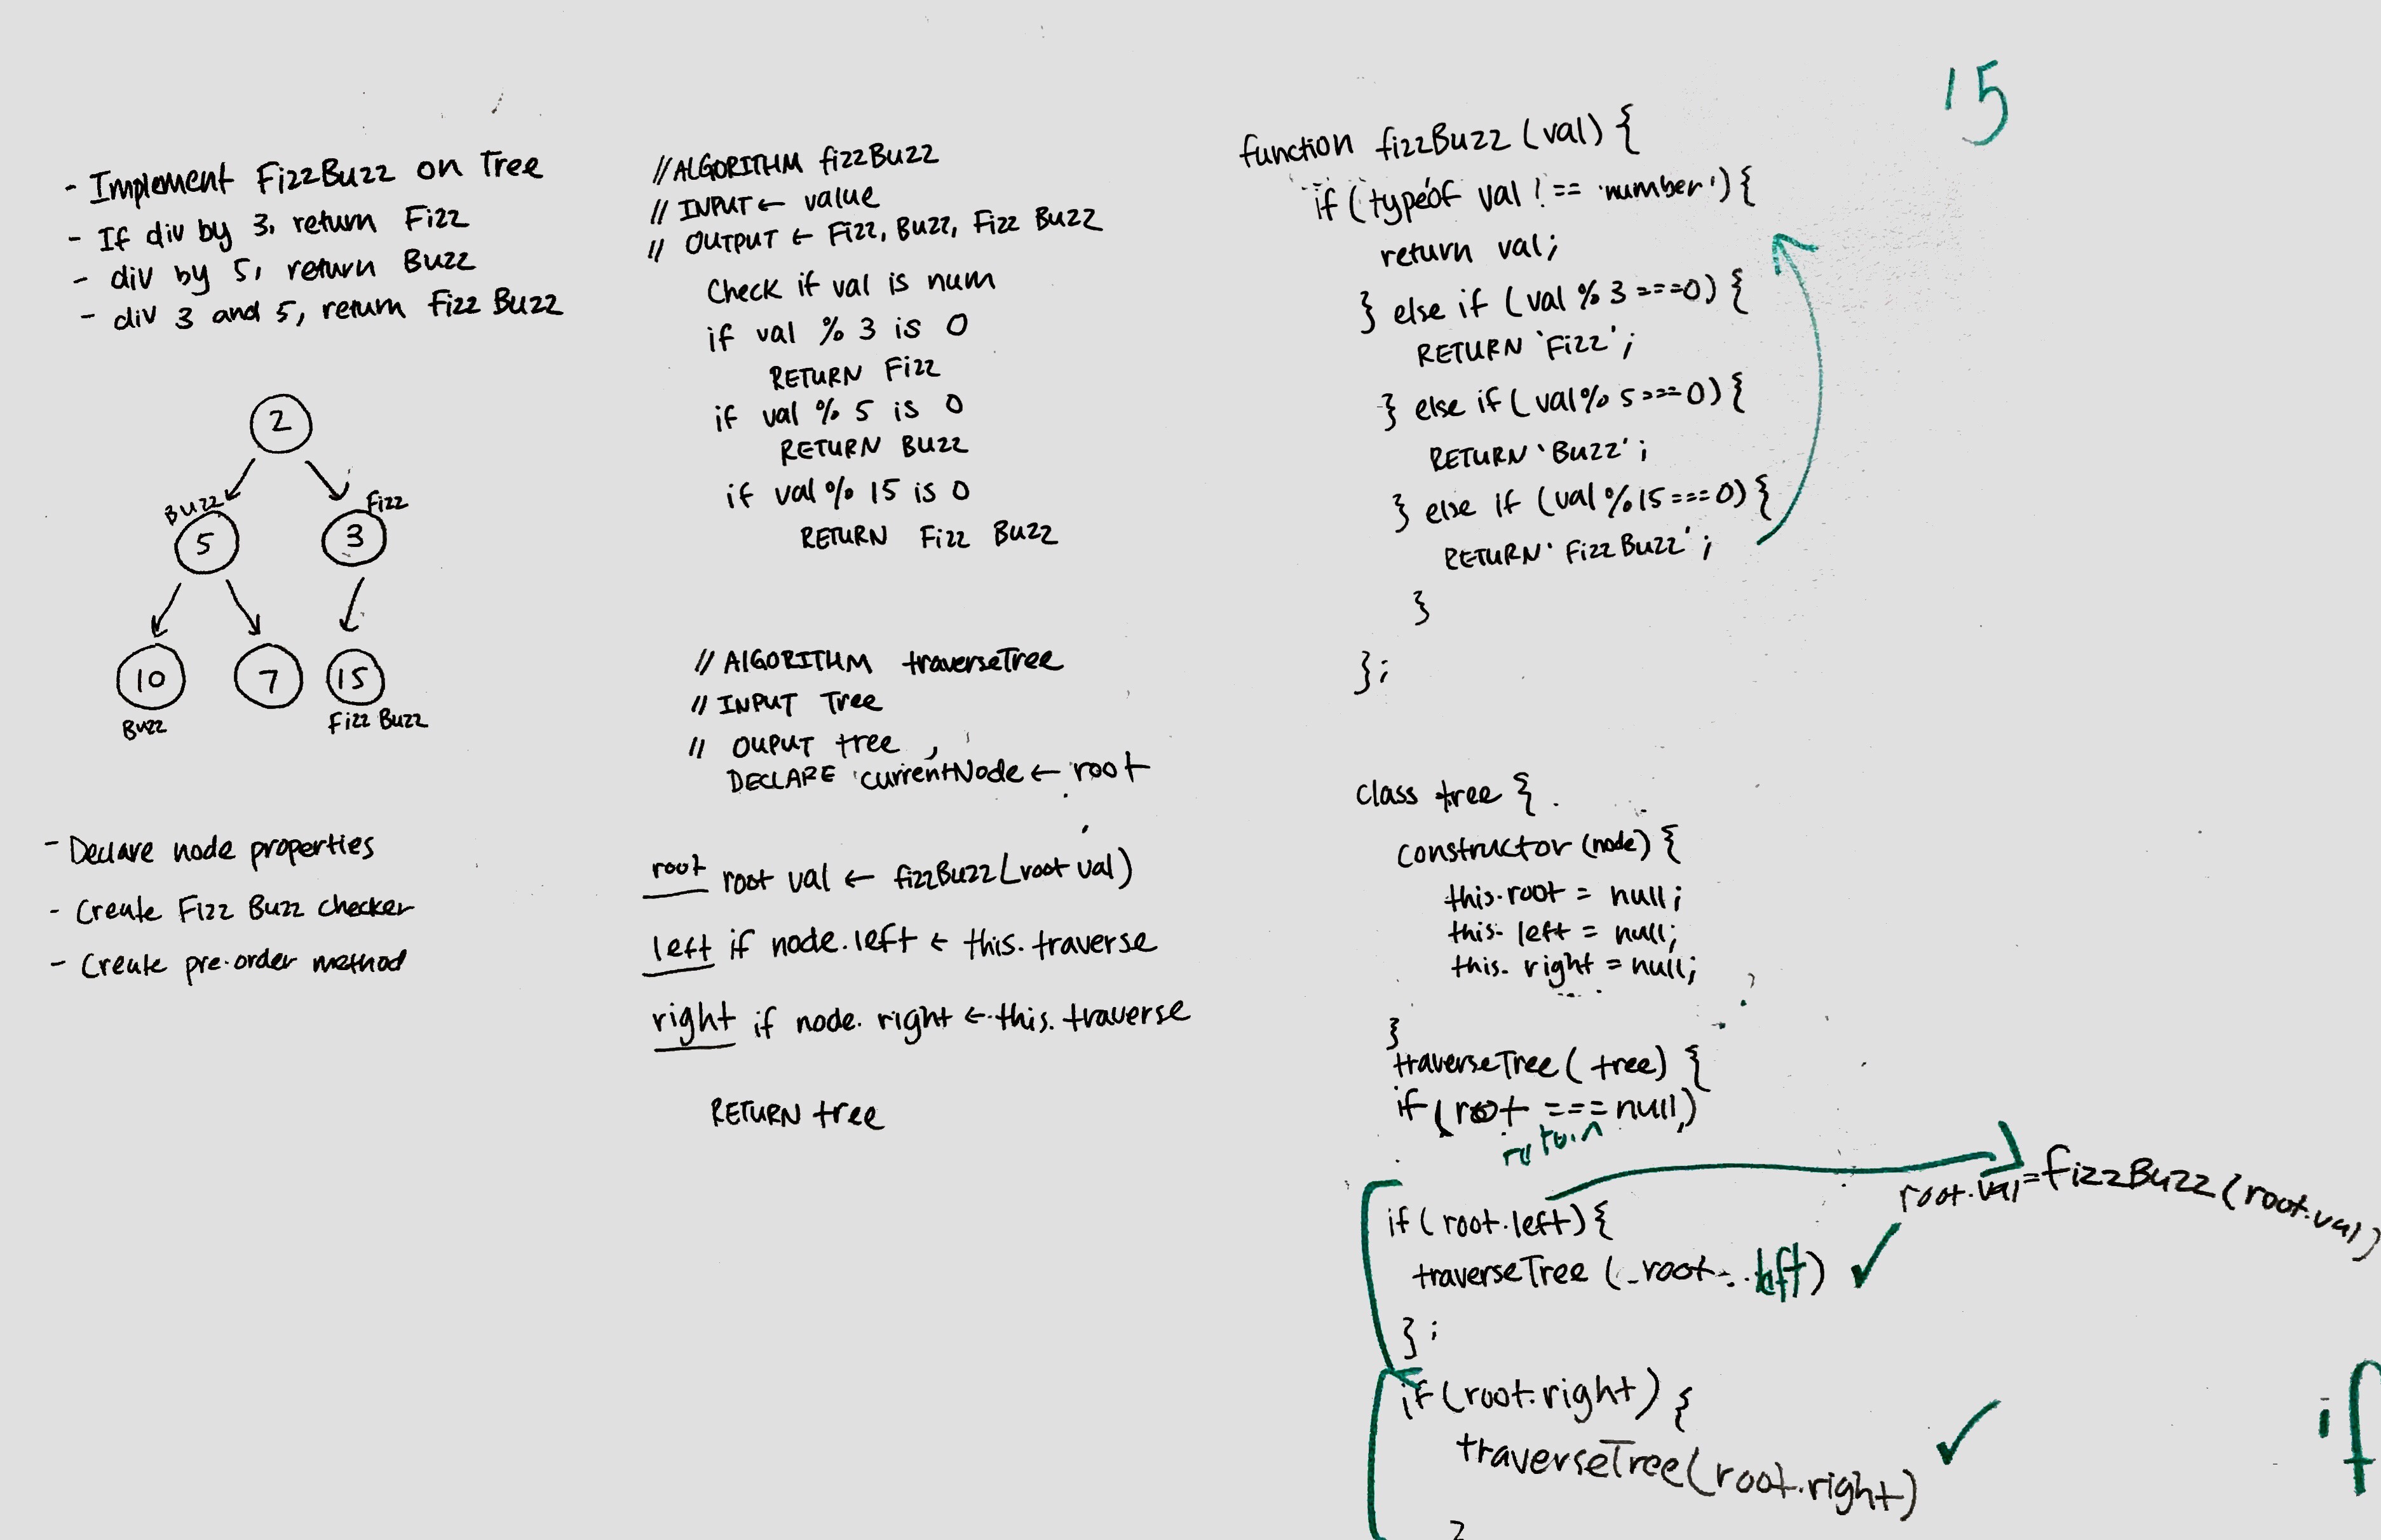 - Implement FizzBuzz on Tree
- If div by 3, return Fizz
- div by 5, return Buzz
- div 3 and 5, return Fizz Buzz
2
Buzz
Fizz
5
3
10
7
15
Buzz
Fizz Buzz
- Declare node properties
- Create Fizz Buzz checker
- Create pre-order method
// ALGORITHM fizzBuzz
// INPUT ← value
// OUTPUT ← Fizz, Buzz, Fizz Buzz
Check if val is num
if val % 3 is 0
RETURN Fizz
if val % 5 is 0
RETURN Buzz
if val % 15 is 0
RETURN Fizz Buzz
// ALGORITHM traverseTree
// INPUT Tree
// OUPUT tree
DECLARE currentNode ← root
root root val ← fizzBuzz(root val)
left if node.left ← this.traverse
right if node.right ← this.traverse
RETURN tree
15
function fizzBuzz (val) {
if (typeof val !== 'number') {
return val;
} else if (val % 3 === 0) {
RETURN 'Fizz';
} else if (val % 5 === 0) {
RETURN 'Buzz';
} else if (val % 15 === 0) {
RETURN 'FizzBuzz';
}
};
class tree {
constructor (node) {
this.root = null;
this.left = null;
this.right = null;
}
traverseTree (tree) {
if (root === null)
return
root.val = fizzBuzz(root.val)
if (root.left) {
traverseTree (root.left)
};
if (root.right) {
traverseTree(root.right)
}
if